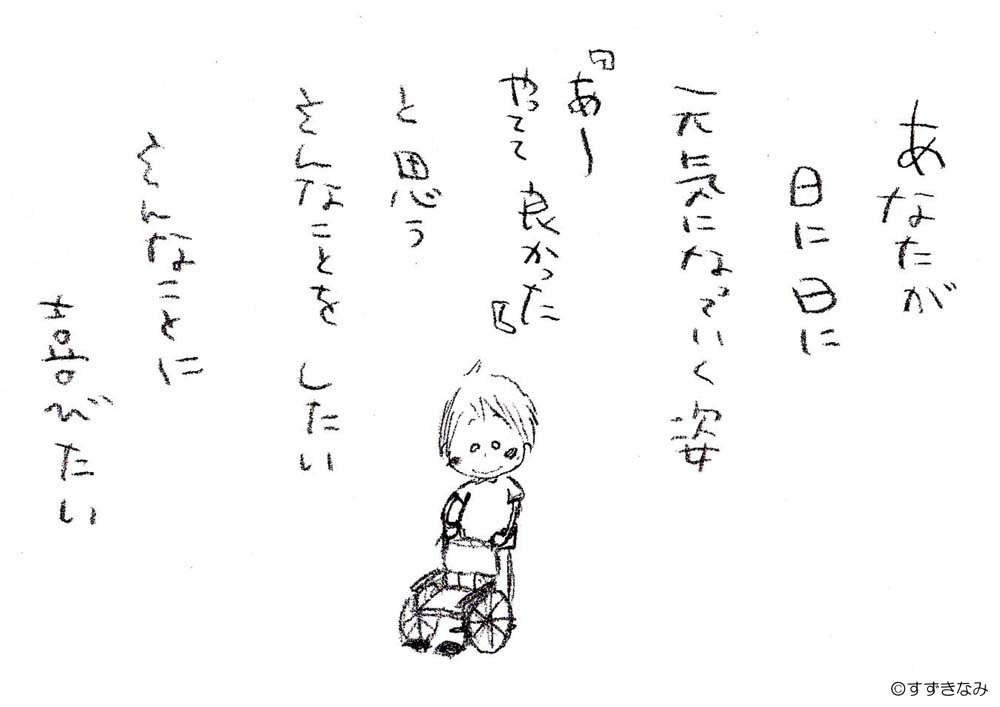 あなたが
日に日に
元気になっていく姿
『あー
やってて良かった』
と思う
そんなことをしたい
そんなことに
喜びたい
©すずきなみ